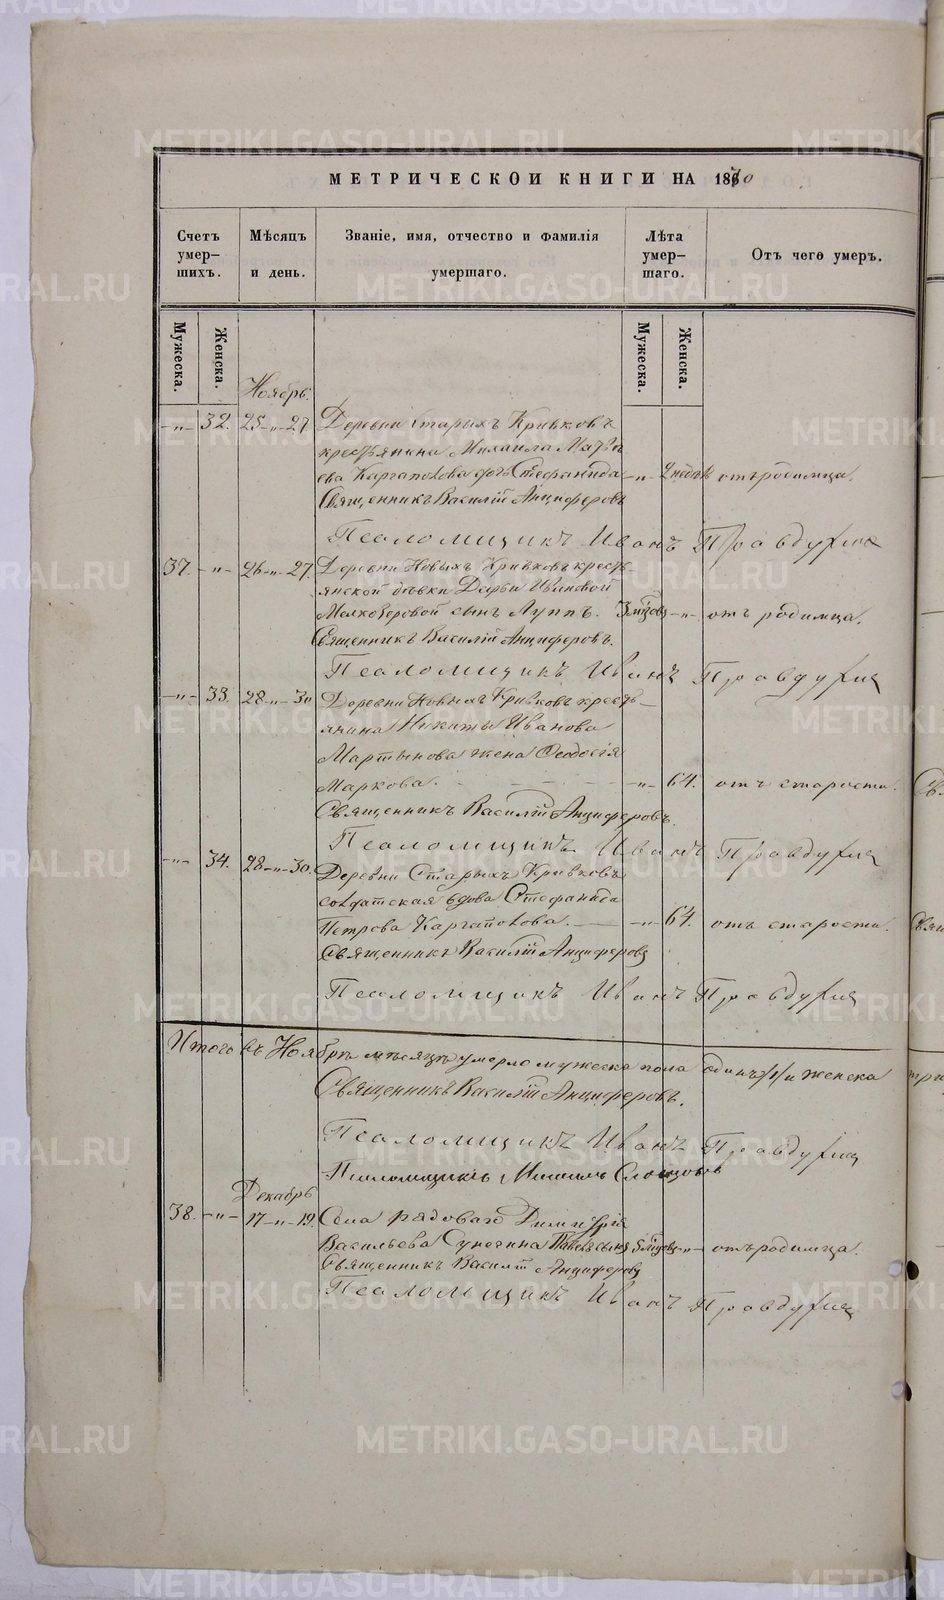 METRIKI.GASO-URAL.RU
МЕТРИЧЕСКОЙ КНИГИ НА 1870
Счетъ умер- шихъ.
Мѣсяцъ и день.
Званіе, имя, отчество и фамилія умершаго.
Лѣта умер- шаго.
Отъ чего умеръ.
Мужеска.
Женска.
Мужеска.
Женска.
Ноябрь.
-"- 32. 25-"-27 Деревни Старыхъ Кривковъ
крестьянина Михаила Матѳѣ
ева Каргаполова дочь Стефанида -"- 2 недѣль отъ родимца.
Священникъ Василій Анциферовъ
Псаломщикъ Иванъ Правдухинъ
37. -"- 26-"-27. Деревни Новыхъ Кривковъ кресть
янской дѣвки Дарьи Ивановой
сынъ Луппъ. -"- отъ родимца.
Священникъ Василій Анциферовъ.
Псаломщикъ Иванъ Правдухинъ
-"- 33. 28-"-30 Деревни Новыхъ Кривковъ кресть
янина Никиты Иванова
Мартынова жена Ѳеодосія
Маркова. -"- 64. отъ старости.
Священникъ Василій Анциферовъ.
Псаломщикъ Иванъ Правдухинъ
-"- 34. 28-"-30. Деревни Старыхъ Кривковъ
солдатская вдова Стефанида
Петрова Каргаполова. -"- 64. отъ старости.
Священникъ Василій Анциферовъ
Псаломщикъ Иванъ Правдухинъ
Итого въ Ноябрѣ мѣсяцѣ умерло мужеска пола одинъ /1/ и женска
Священникъ Василій Анциферовъ.
Псаломщикъ Иванъ Правдухинъ
Псаломщикъ Слопцовъ
Декабрь
38. -"- 17-"-19. Села рядоваго Димитрія
Васильева сынъ -"- отъ родимца.
Священникъ Василій Анциферовъ
Псаломщикъ Иванъ Правдухинъ